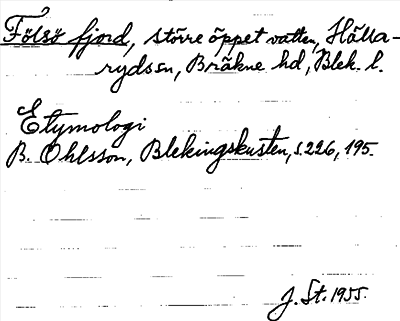 Fölsö fjord, större öppet vatten, Hälla-
rydssn, Bräkne hd, Blek. l.
Etymologi
B. Ohlsson, Blekingskusten, s. 226, 195.
J. St. 1955.